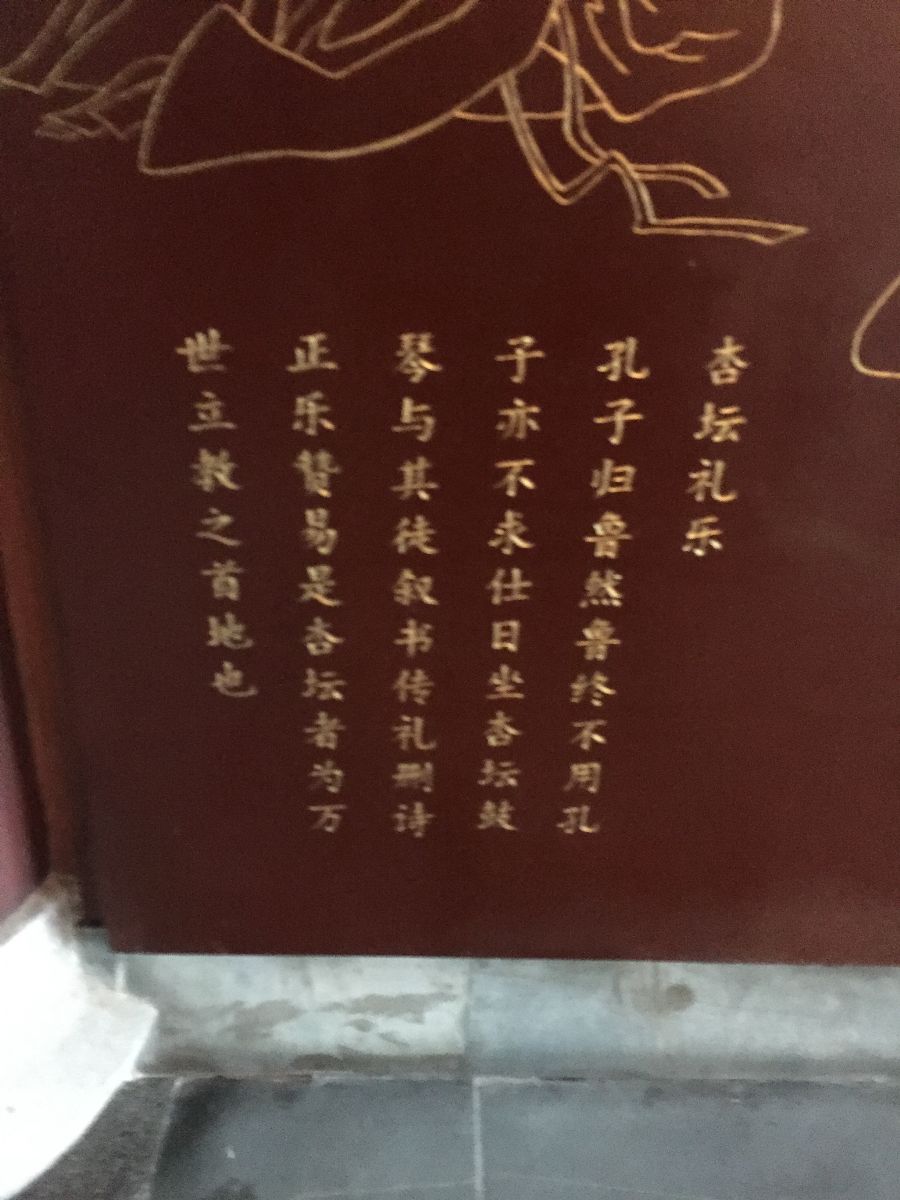 杏坛礼乐
孔子归鲁然鲁终不用孔
子亦不求仕日坐杏坛鼓
琴与其徒叙书传礼删诗
正乐赞易是杏坛者为万
世立教之首地也